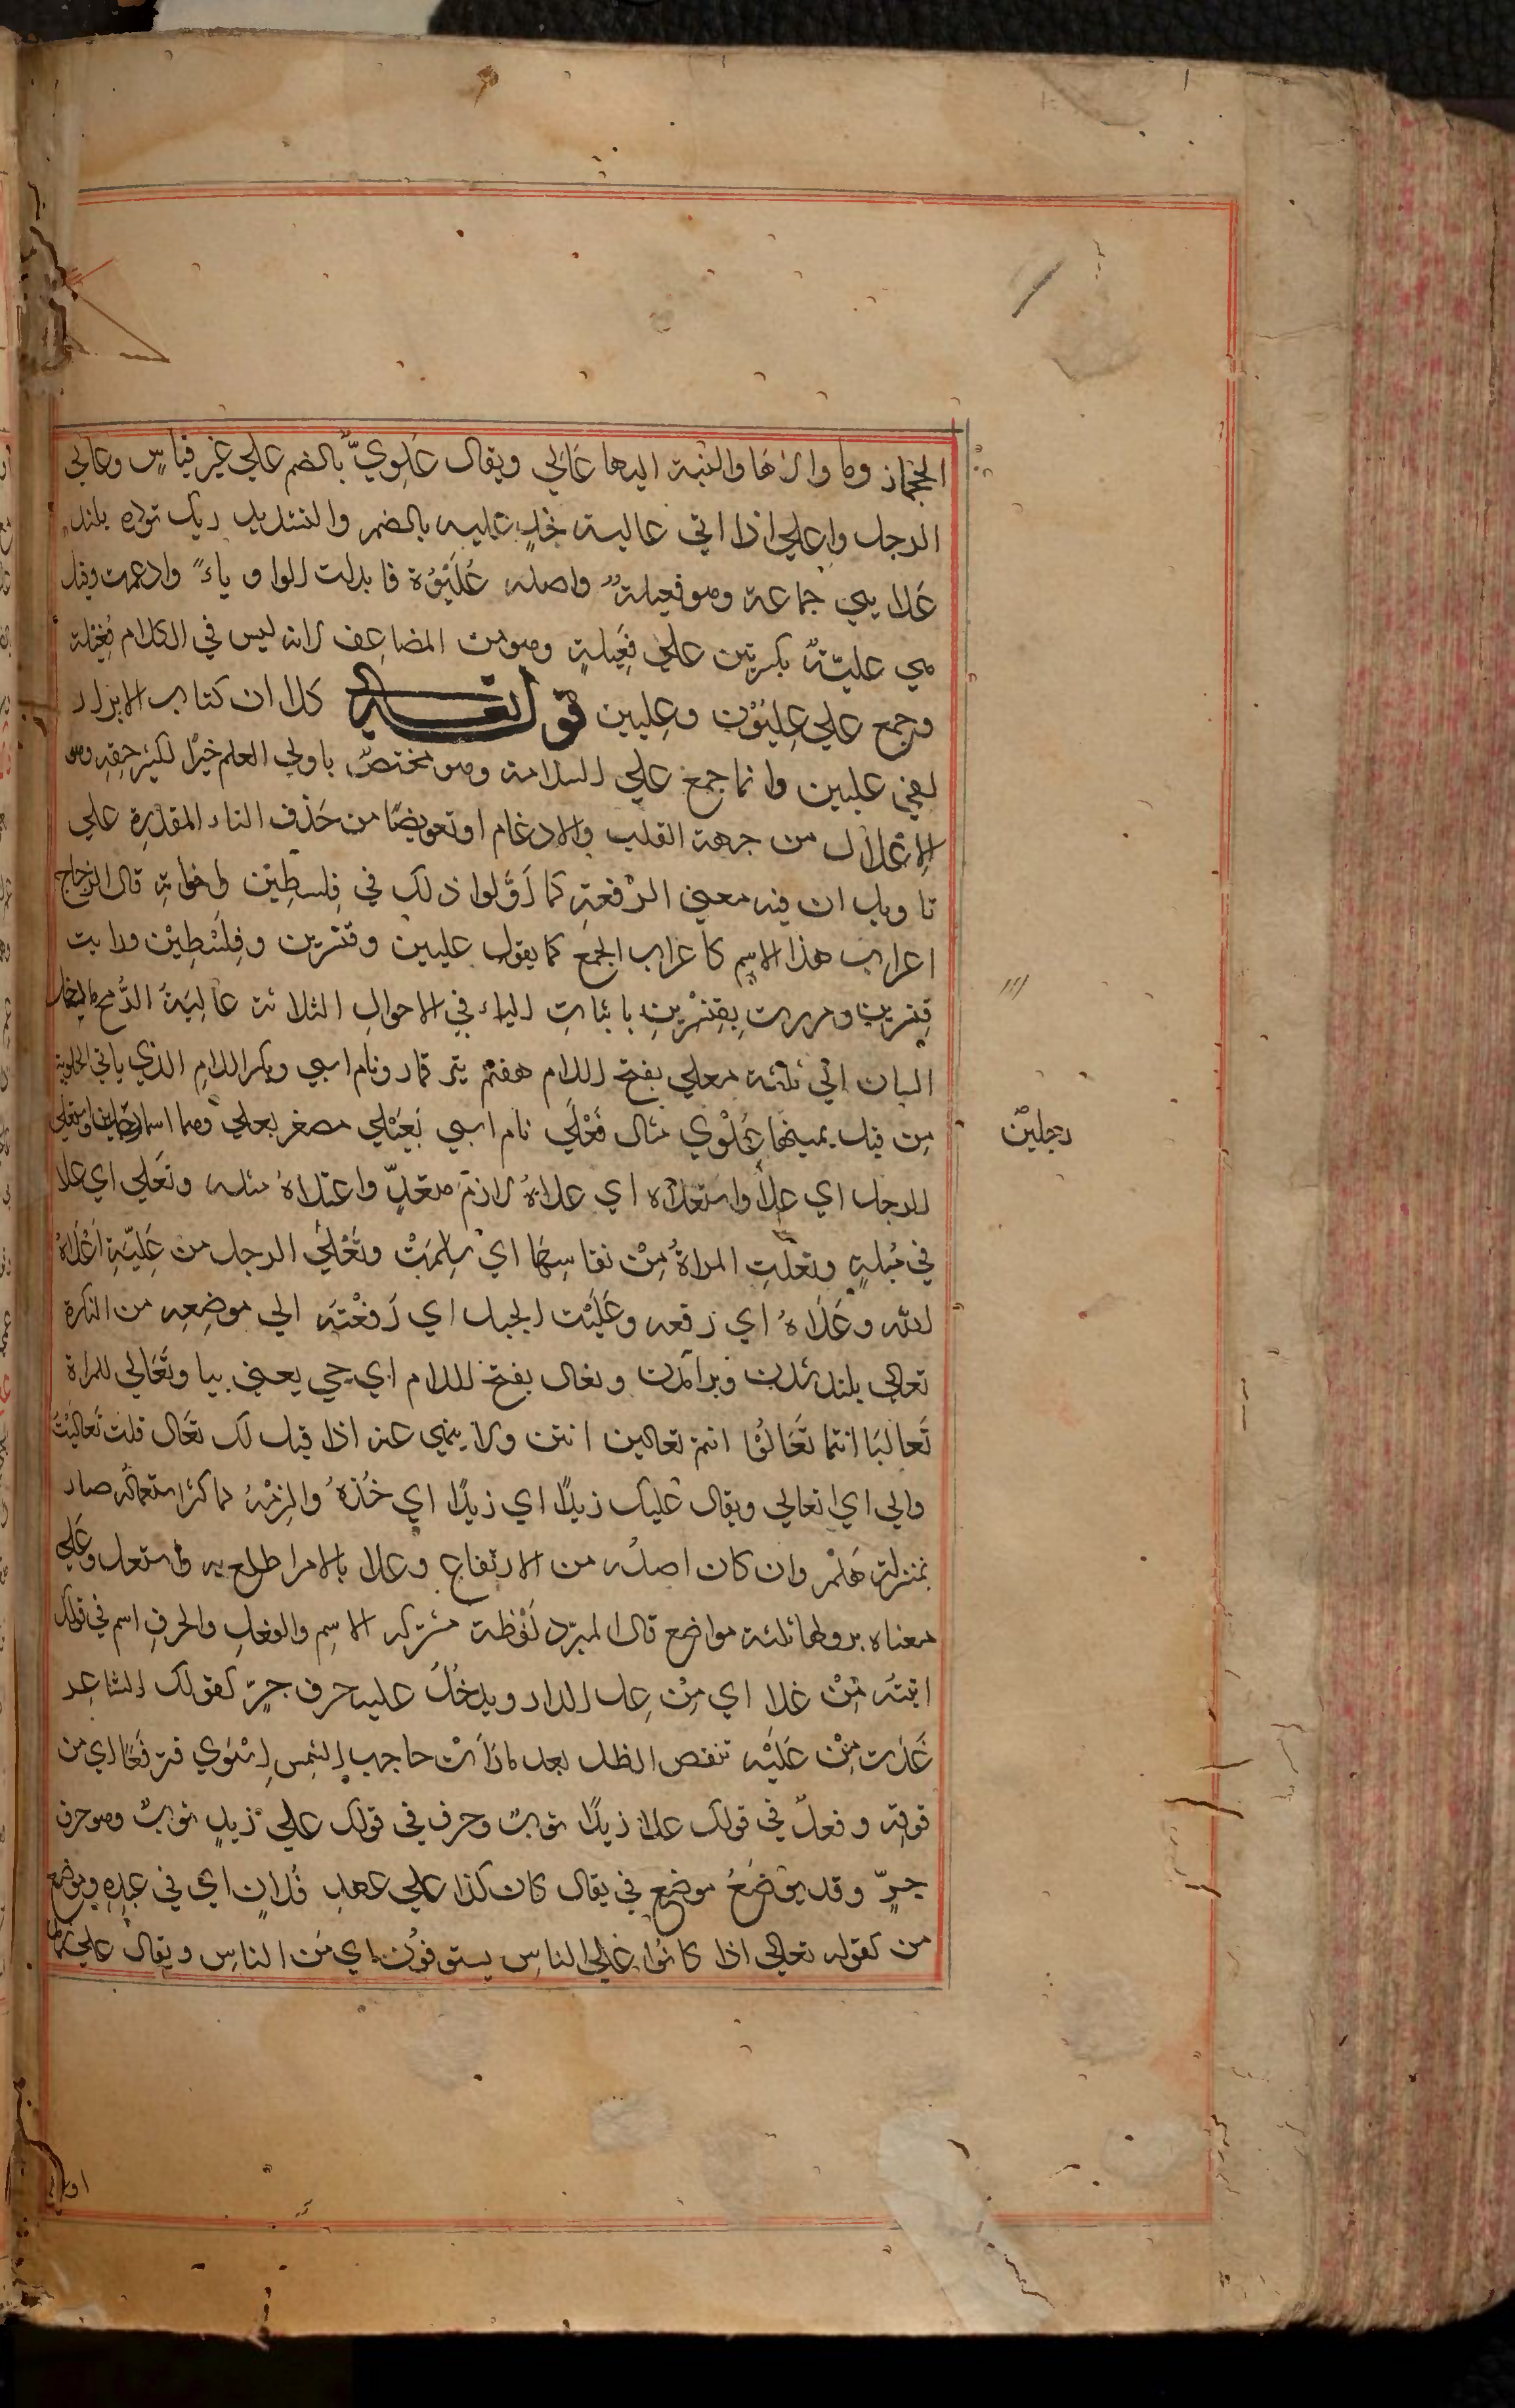 الحجاز وما والاها والنسبة اليها عَالي ويقال عُلويٌّ بالضم علي غير قياسٍ وعالي
الرجل واعلي اذا اتي عالية نجدٍ عليه بالضم والتشديد ريک توده بلند
علا يي جماعة وهو فعيلةٌ واصله عُلَيْوَة فابدلت الواو ياءً وادغمت وقيل
هي عليّةٌ بكسرتين علي فِعِّيلةٍ وهو من المضاعف لانه ليس في الكلام فُعّيلة
وجمع علي عِلِيّوْن وعِليين قوله تعالي كلا ان كتاب الابرار
لفي عليين وانما جمع علي السلامة وهو مختصٌ باولي العلم خيرًا لكثير حقه وهو
الاعْلال من جهة القلب والادغام او تعويضًا من حَذف التاء المقدّرة علي
تاويل ان فيه معني الرّفعةِ كما اَوَّلوا ذلک في فِلسطِين واخواته قال الزجاج
اعراب هذا الاسم كاعراب الجمع كما يقول عليين وقنسرين وفِلَسْطِيْن ورايت
قِنّسرين ومررت بِقِنّسْرِينِ باثباتِ الياء في الاحوالِ الثلاثة عَالِيَةُ الرُّمح ما دخل
السنان الي ثلثه معلي بفتح اللام هفتم تير قمار ونام اسپي وبكسر اللامِ الذي ياتي الحلوبة
من قبل يمينها عَلْوي مثال فَعْلَي نام اسپي يُعَيْلي مصغر يعلي وهما اسما رجلين واستعلي
رجلَيْن
الرجل اي علا واستعلاه اي علاهُ لازمٌ متعدٍّ واعتلاهُ مثله وتعَلي اي علا
في مُهلةٍ وتعلّتِ المراةُ مِنْ نفاسِهَا اي سلِمَتْ وتَعْلَّي الرجل من عَلِيّةٍ اَعْلَاهُ
الله وعَلَّاهُ اي رفعه وعَلَّيْت الحبل اي رَفعْتَه الي موضِعِه من البكرة
تعالي بلند شدن وبرآمدن وتعال بفتح اللام اي جي يعني بيا وتَعَالي للمراة
تَعاليَا انتما تَعَالَوْا انتم تعالين انتن ولا ينهي عنه اذا قيل لک تعَال قلت تَعاليْتُ
والي اي اتعالي ويقال عليک زيدًا اي زيدًا اي خُذهُ والزِمْهُ لما كثر استعماله صار
بمنزلة هَلُمّ وان كان اصله من الارتفاع وعلا بالامر اطلع به واستعل وعَلي
معناه بر ولها ثلثة مواضع قال المبرّد لَفْظة مشتركة الاسم والفعل والحرفِ اسم في قولک
اتيته مِنْ علا اي مِنْ عِل الدار ويدخُلُ عليه حرف جرٍّ كقولک الشاعر
غَدَت مِنْ عَلَيْه تنفض الظل بعد ما رَاَتْ حاجب الشمس اِسْتوَي فترفّعَا اي من
فوقه وفعلٌ في قولک علا زيدًا ثوبٌ وحرف في قولک علي زيدٍ ثوبٌ وهو حرف
جرٍّ وقد يوضَعُ موضع في يقال كان كذا علي عهد فُلانٍ اي في عهدِهِ وموضع
من كقوله تعالي اذا كالُوا علي الناس يستوفوْن اي من الناس ويقال علي